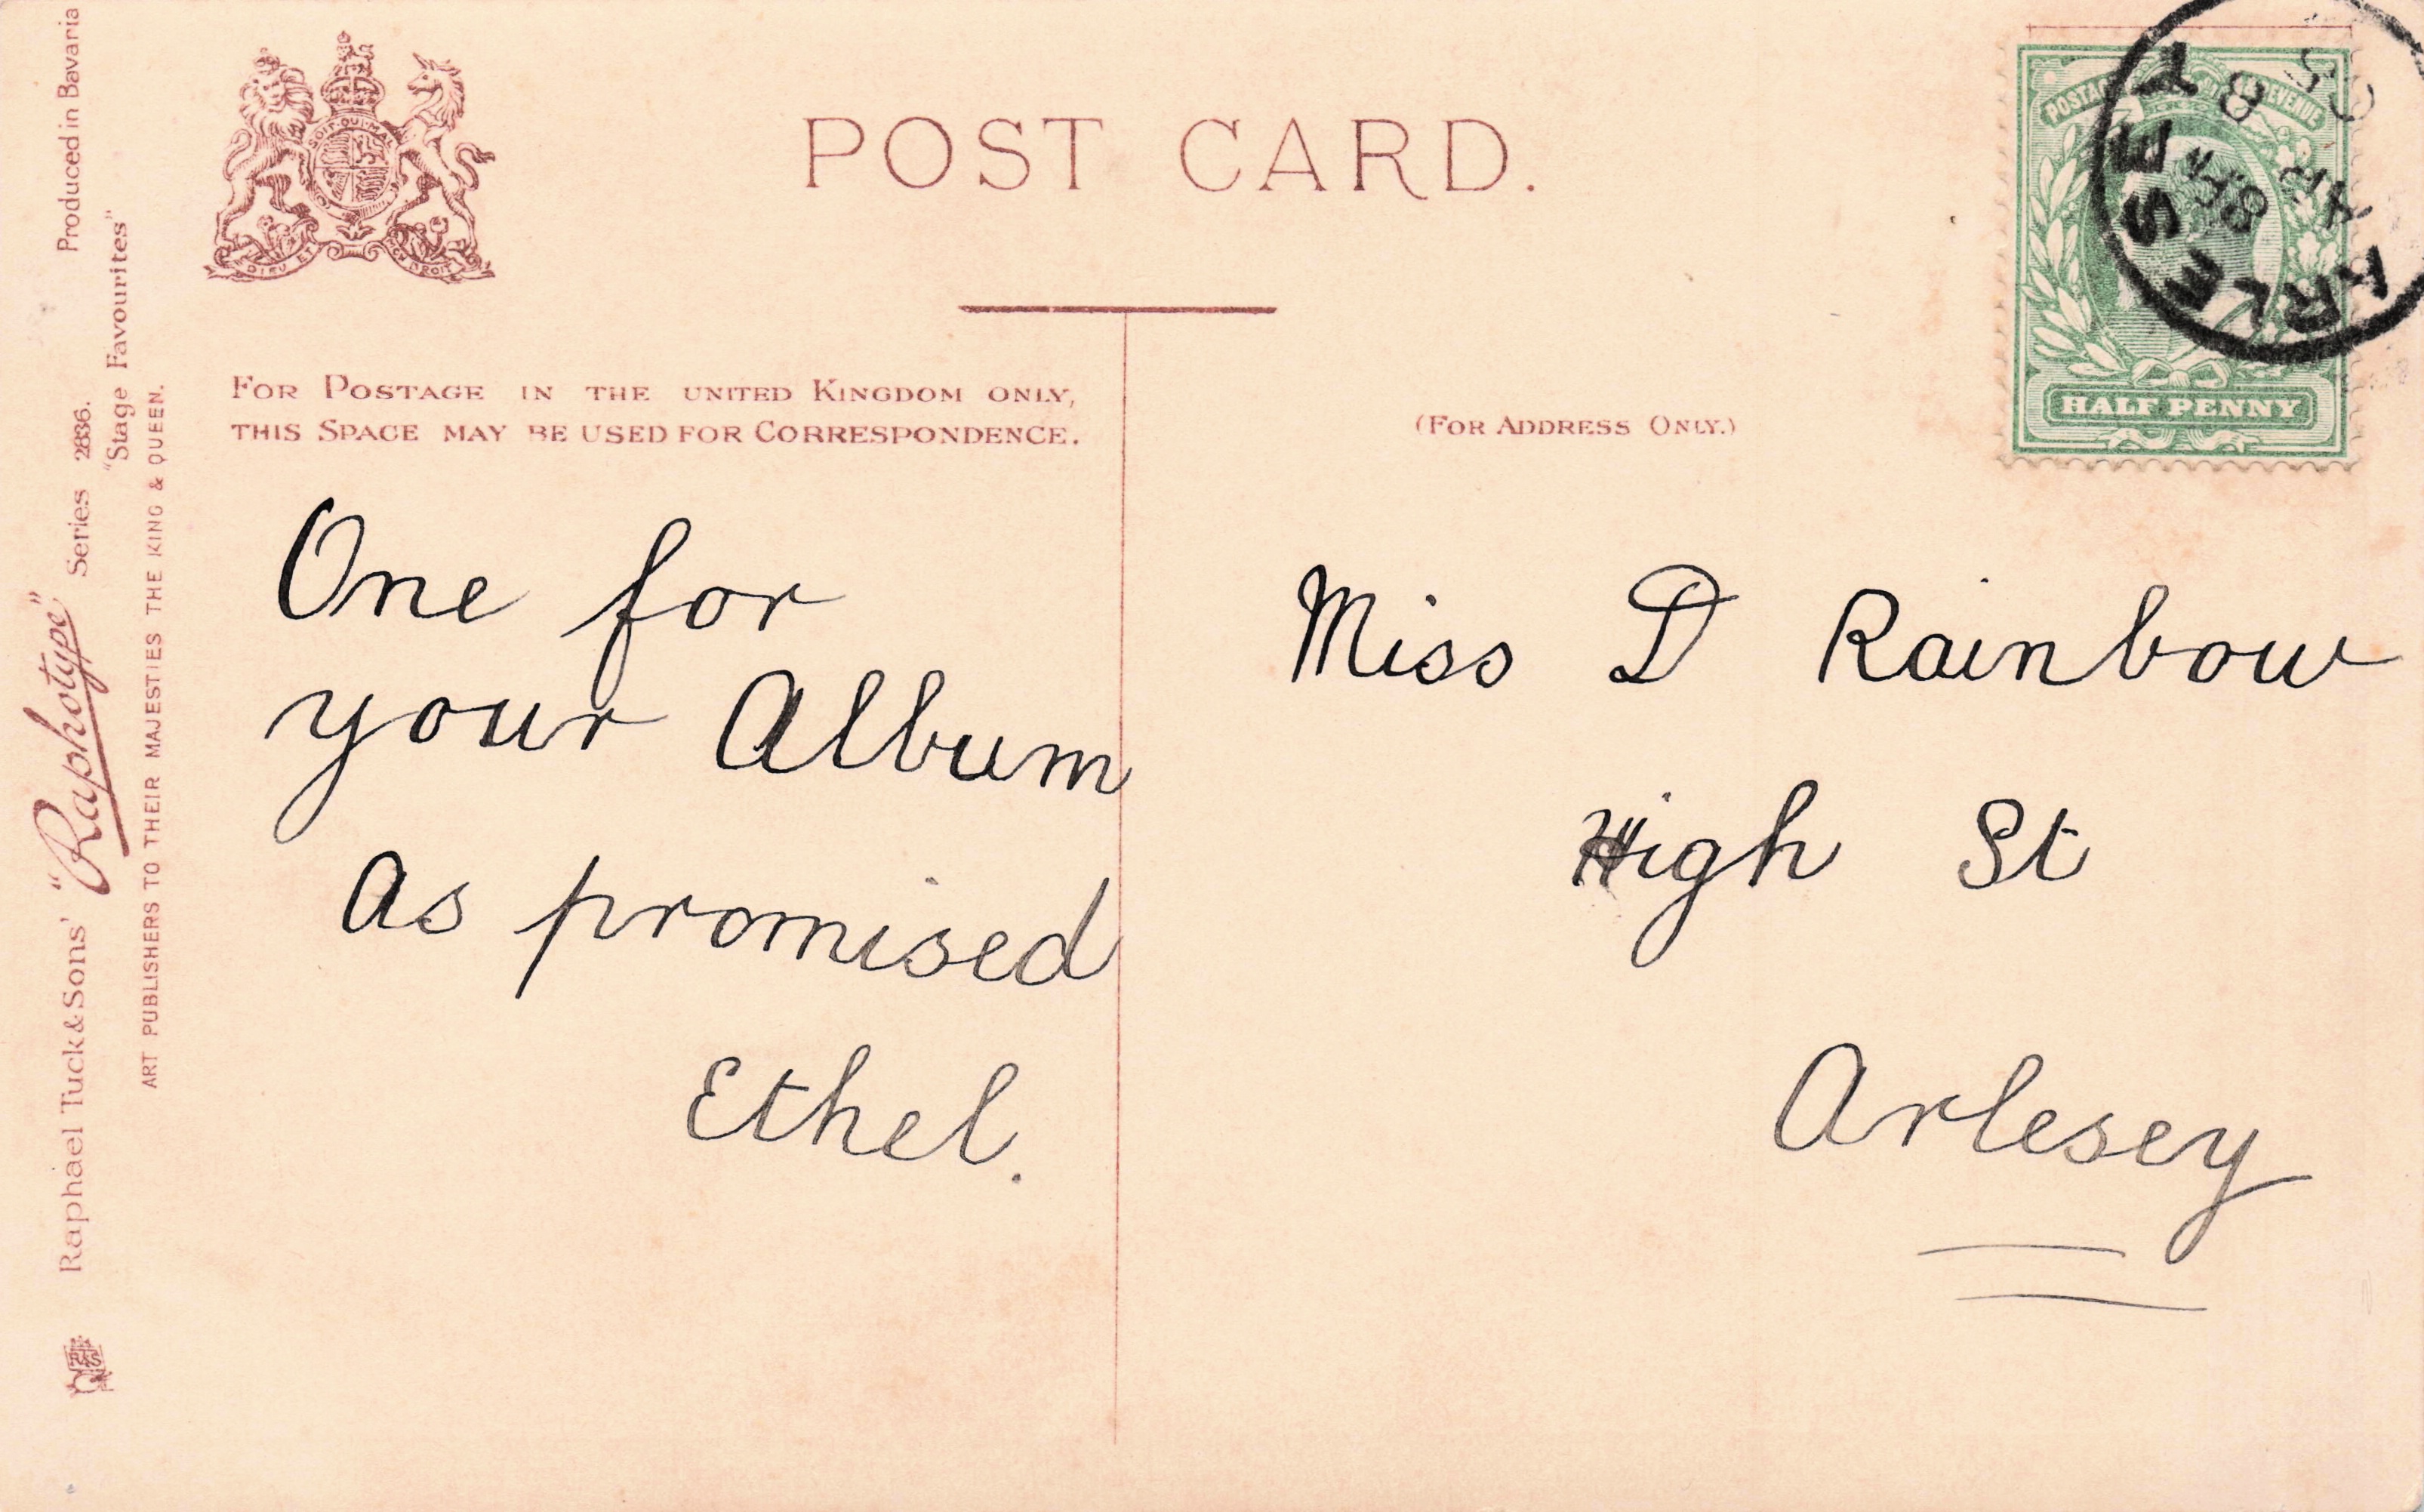 Produced in Bavaria
Raphael Tuck & Sons' "Raphotype" Series 2836.
"Stage Favourites"
ART PUBLISHERS TO THEIR MAJESTIES THE KING & QUEEN.
POST CARD.
FOR POSTAGE IN THE UNITED KINGDOM ONLY,
THIS SPACE MAY BE USED FOR CORRESPONDENCE.
(FOR ADDRESS ONLY.)
HALF PENNY
ARLESEY
One for
your Album
As promised
Ethel.
Miss D Rainbow
High St
Arlesey